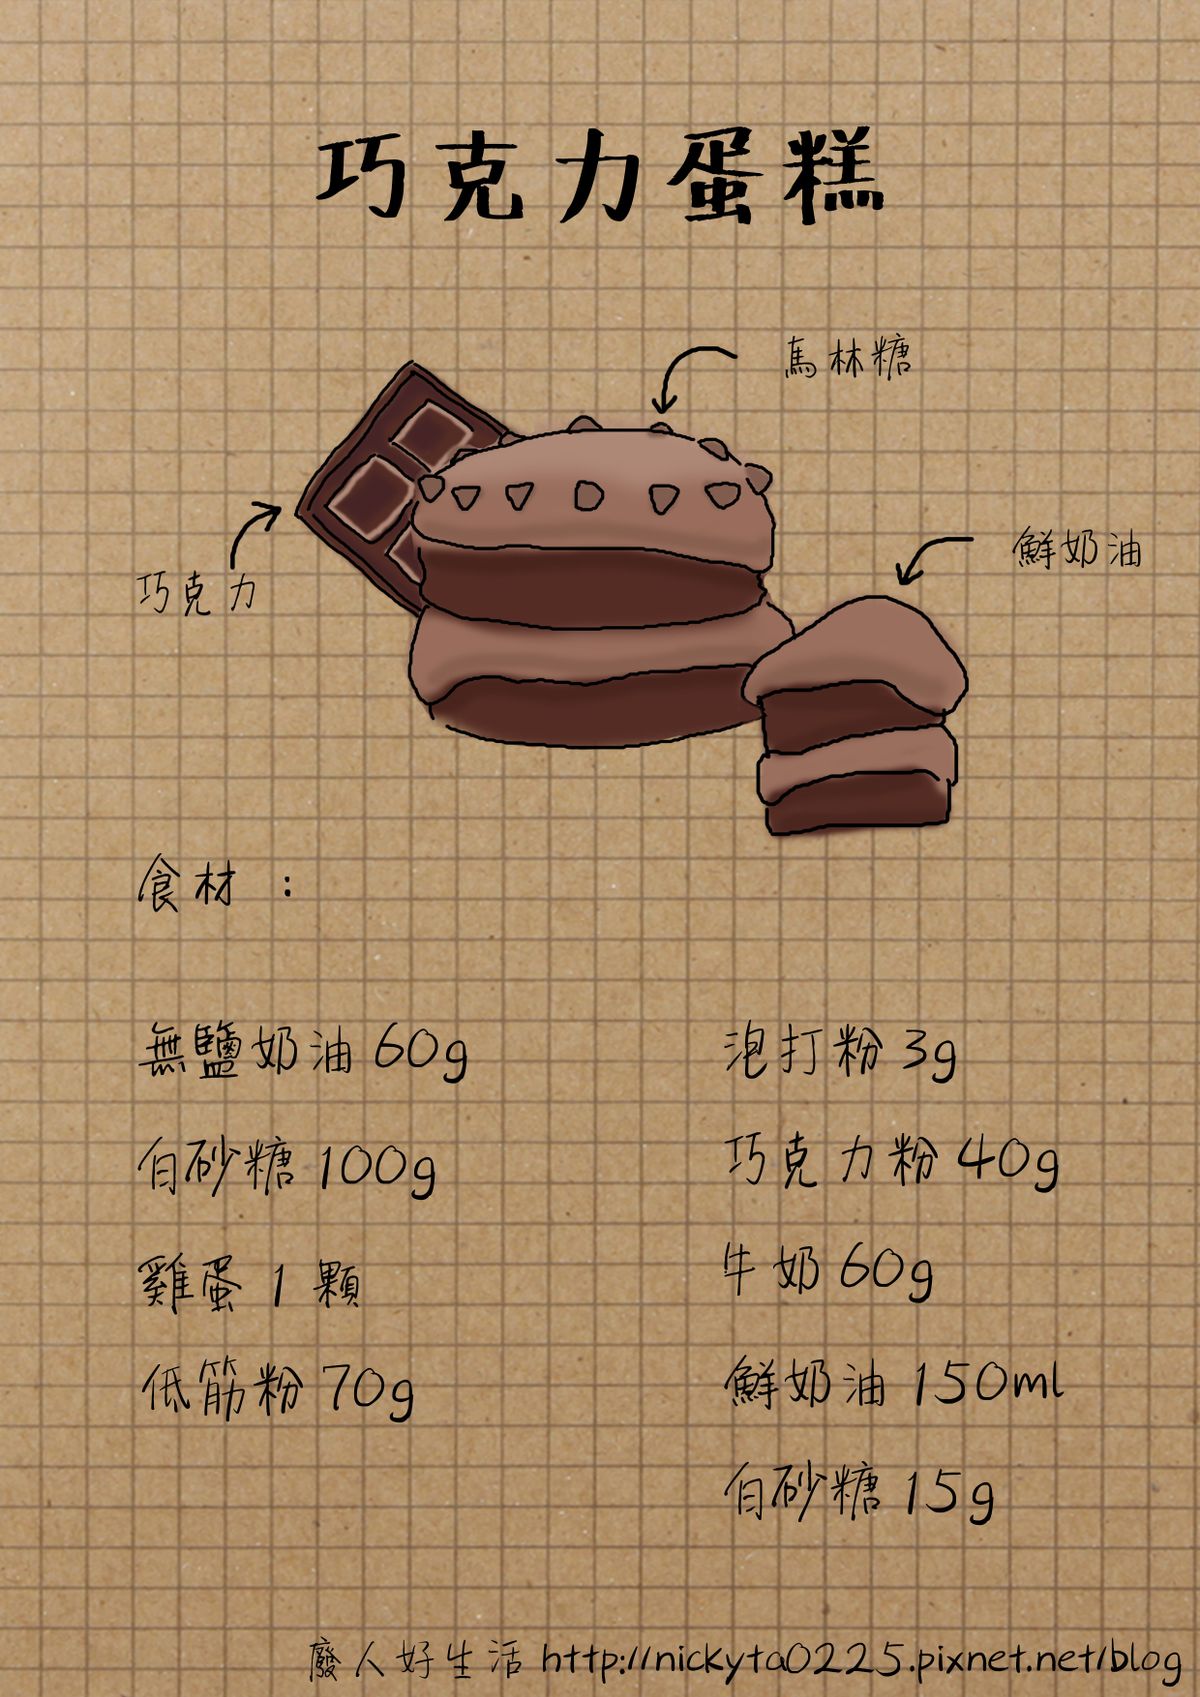 巧克力蛋糕
馬林糖
鮮奶油
巧克力
食材 :
無鹽奶油 60g
白砂糖 100g
雞蛋 1 顆
低筋粉 70g
泡打粉 3g
巧克力粉 40g
牛奶 60g
鮮奶油 150ml
白砂糖 15g
廢人好生活 http://nickyta0225.pixnet.net/blog